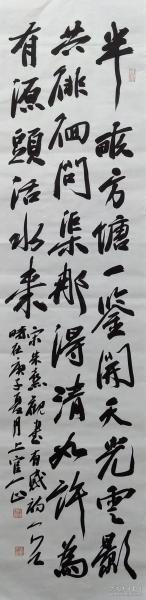 半畝方塘一鑒開天光雲影
共徘徊問渠那得清如許為
有源頭活水來
宋朱熹觀書有感詩一首
時在庚子夏月上官一山